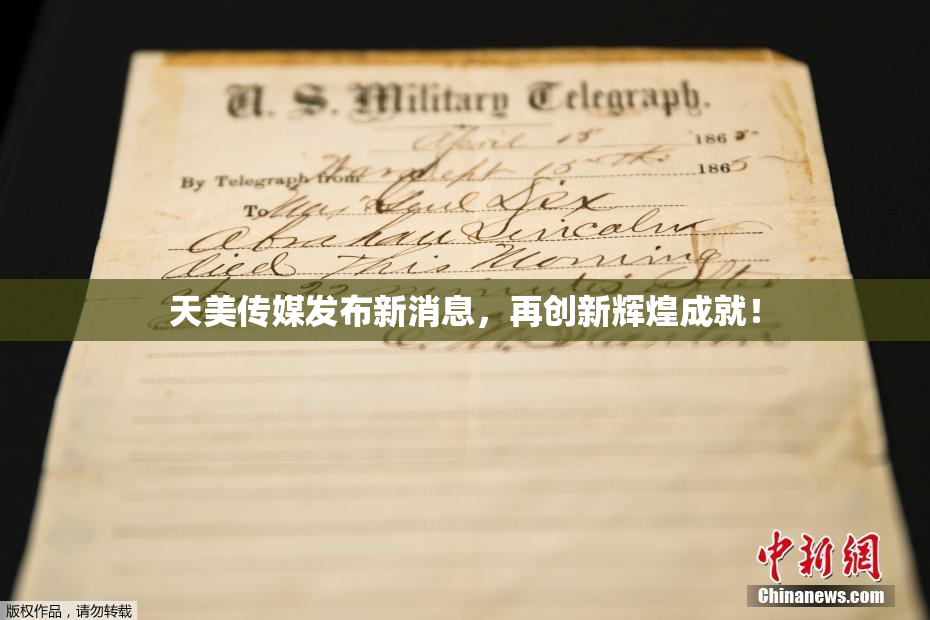 U. S. Military Telegraph.
April 15 1865
By Telegraph from War Dept 15th 1865
To Maj Genl Dix
Abraham Lincoln
died This Morning
22 minutes after
天美传媒发布新消息，再创新辉煌成就！
E. M. Stanton
中新网
Chinanews.com
版权作品，请勿转载